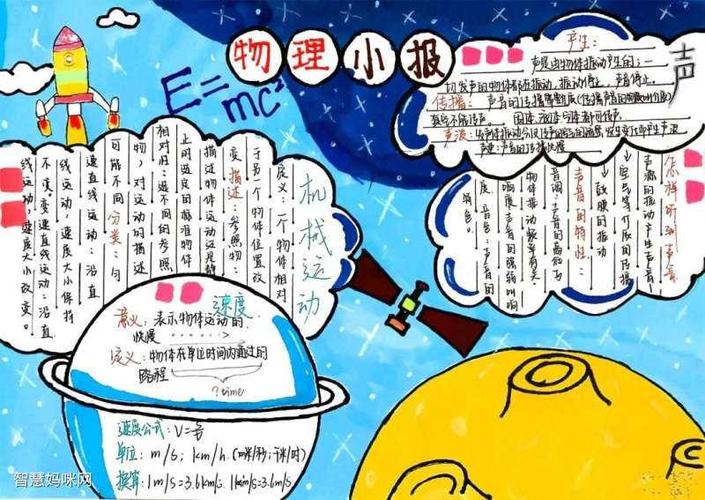 物理小报
E=mc²
机械运动
定义:一个物体相对
于另一个物体位置改
变 描述:参照物:
描述物体运动还是静
止时选定的标准物体
相对性:选不同的参照
物,对运动的描述
可能不同 分类:匀
速直线运动:沿直
线运动,速度大小保持
不变 变速直线运动:沿直
线运动,速度大小改变。
声
产生:
声是由物体振动产生的:一
切发声的物体都在振动,振动停止,声音停止。
传播:声音的传播需要介质(传播声音的物质叫介质)
真空不能传声。固体、液体、气体都可传声。
声波:
声速:声音的传播快慢
怎样听到声音
声源的振动产生声音
空气等介质的传播
鼓膜的振动
声音的特性:
音调:声音的高低与
物体振动频率有关。
响度:声音的强弱叫响
度 音色:声音的
特色。
速度
意义:表示物体运动的
快慢
定义:物体在单位时间内通过的
路程
?time
速度公式:V=
单位:m/s;km/h.(米/秒;千米/时)
换算:1m/s=3.6km/h
智慧妈咪网